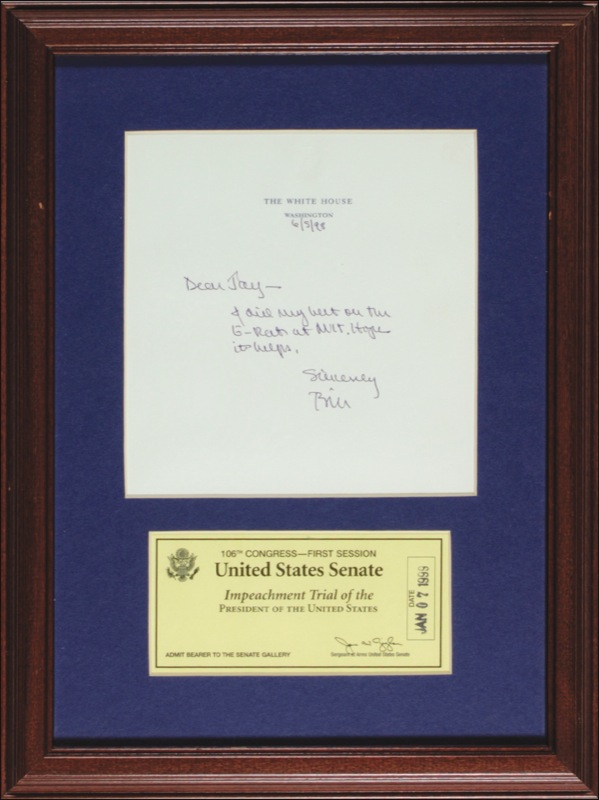 THE WHITE HOUSE
WASHINGTON
6/5/98
Dear Jay—
I did my best on the
E-Rate at MIT. Hope
it helps.
Sincerely
Bill
106TH CONGRESS—FIRST SESSION
United States Senate
Impeachment Trial of the
PRESIDENT OF THE UNITED STATES
DATE
JAN 07 1999
ADMIT BEARER TO THE SENATE GALLERY
Sergeant at Arms United States Senate